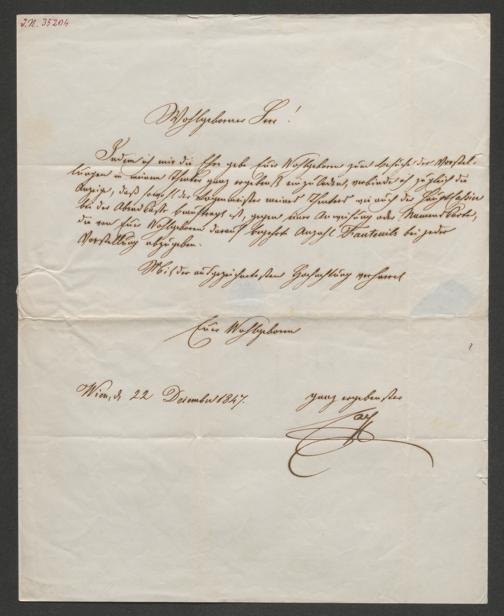 J.N. 35204
Wohlgeborner Herr!
Indem ich mir die Ehre gebe Euer Wohlgeborn zum Besuche der Vorstel-
lungen in meinem Theater ganz ergebenst einzuladen, verbinde ich zugleich die
Anzeige, daß sowohl der Logenmeister meines Theaters wie auch der Hauptkassier
bei der Abendkasse beauftragt ist, gegen eine Anweisung oder Namens Karte,
die von Euer Wohlgeborn darauf begehrte Anzahl Fauteuils bei jeder
Vorstellung abzugeben.
Mit der ausgezeichnetsten Hochachtung verharret
Euer Wohlgeborn
Wien, d. 22 Dezember 1847.
ganz ergebenster